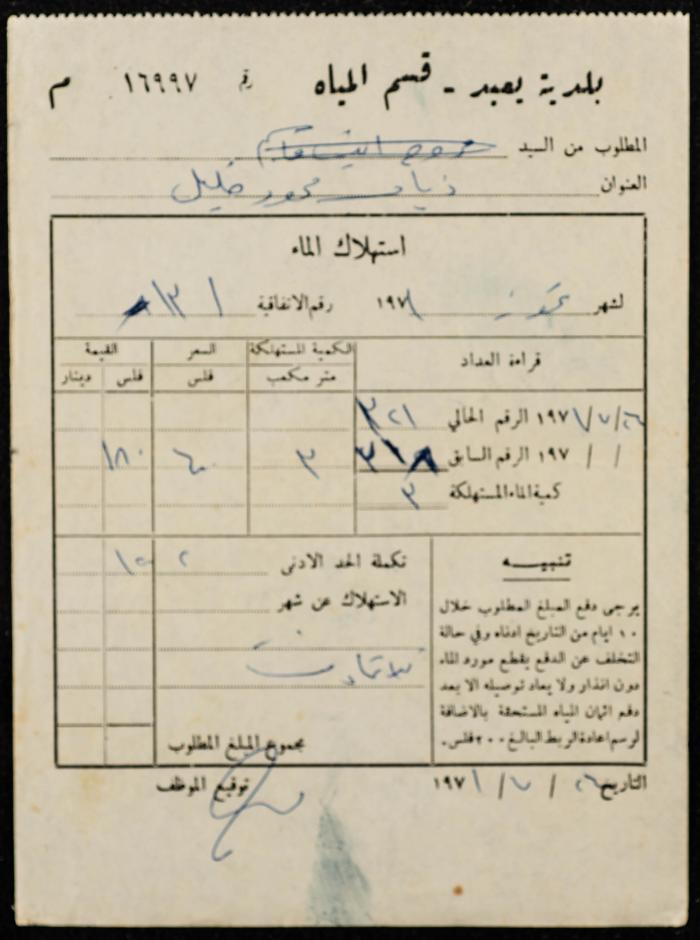 بلدية يعبد - قسم المياه رقم ١٦٩٩٧ م
المطلوب من السيد
العنوان ذياب محمود خليل
استهلاك الماء
لشهر تموز ١٩٧١ رقم الاتفاقية ١٣١
قراءة العداد الكمية المستهلكة السعر القيمة
متر مكعب فلس فلس دينار
٢٦/٧/١٩٧١ الرقم الحالي ٣٢١
/ / ١٩٧ الرقم السابق ٣١٨
٣ ٦٠ ١٨٠
كمية الماء المستهلكة ٣
تنبيه
يرجى دفع المبلغ المطلوب خلال
١٠ ايام من التاريخ ادناه وفي حالة
التخلف عن الدفع يقطع مورد الماء
دون انذار ولا يعاد توصيله الا بعد
دفع اثمان المياه المستحقة بالاضافة
لرسم اعادة الربط البالغ ٢٠٠ فلس.
تكملة الحد الادنى ٢
الاستهلاك عن شهر
مجموع المبلغ المطلوب
التاريخ ٢٦ / ٧ / ١٩٧١
توقيع الموظف